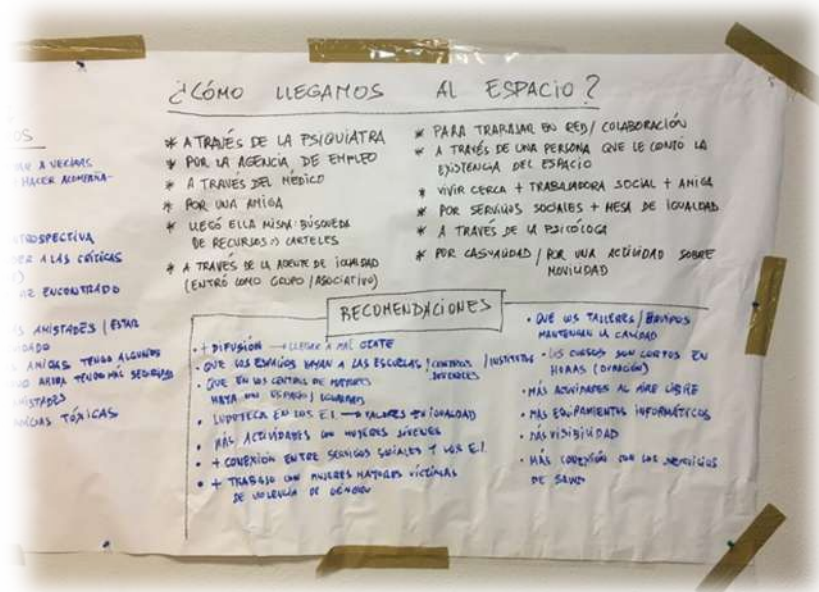 OS
A VECINAS
HACER ACOMPAÑA-
INTROSPECTIVA
A LAS CRÍTICAS
ENCONTRADO
AMISTADES / ESTAR
AMIGAS TENGO ALGUNOS
AHORA TENGO MÁS SEGURIDAD
AMISTADES
TÓXICAS
¿CÓMO LLEGAMOS AL ESPACIO?
* A TRAVÉS DE LA PSIQUIATRA
* POR LA AGENCIA DE EMPLEO
* A TRAVÉS DEL MÉDICO
* POR UNA AMIGA
* LLEGÓ ELLA MISMA: BÚSQUEDA
DE RECURSOS => CARTELES
* A TRAVÉS DE LA AGENTE DE IGUALDAD
(ENTRÓ COMO GRUPO / ASOCIATIVO)
* PARA TRABAJAR EN RED / COLABORACIÓN
* A TRAVÉS DE UNA PERSONA QUE LE CONTÓ LA
EXISTENCIA DEL ESPACIO
* VIVIR CERCA + TRABAJADORA SOCIAL + AMIGA
* POR SERVICIOS SOCIALES + MESA DE IGUALDAD
* A TRAVÉS DE LA PSICÓLOGA
* POR CASUALIDAD / POR UNA ACTIVIDAD SOBRE
MOVILIDAD
RECOMENDACIONES
• + DIFUSIÓN → LLEGAR A MÁS GENTE
• QUE LOS ESPACIOS VAYAN A LAS ESCUELAS / CENTROS JUVENILES / INSTITUTOS
• QUE EN LOS CENTROS DE MAYORES
HAYA UN ESPACIO / IGUALDAD
• LUDOTECA EN LOS E.I. → TALLERES EN IGUALDAD
• MÁS ACTIVIDADES CON MUJERES JÓVENES
• + CONEXIÓN ENTRE SERVICIOS SOCIALES Y LOS E.I.
• + TRABAJO CON MUJERES MAYORES VÍCTIMAS
DE VIOLENCIA DE GÉNERO
• QUE LOS TALLERES / EQUIPOS
MANTENGAN LA CALIDAD
• LOS CURSOS SON CORTOS EN
HORAS (DURACIÓN)
• MÁS ACTIVIDADES AL AIRE LIBRE
• MÁS EQUIPAMIENTOS INFORMÁTICOS
• MÁS VISIBILIDAD
• MÁS CONEXIÓN CON LOS SERVICIOS
DE SALUD